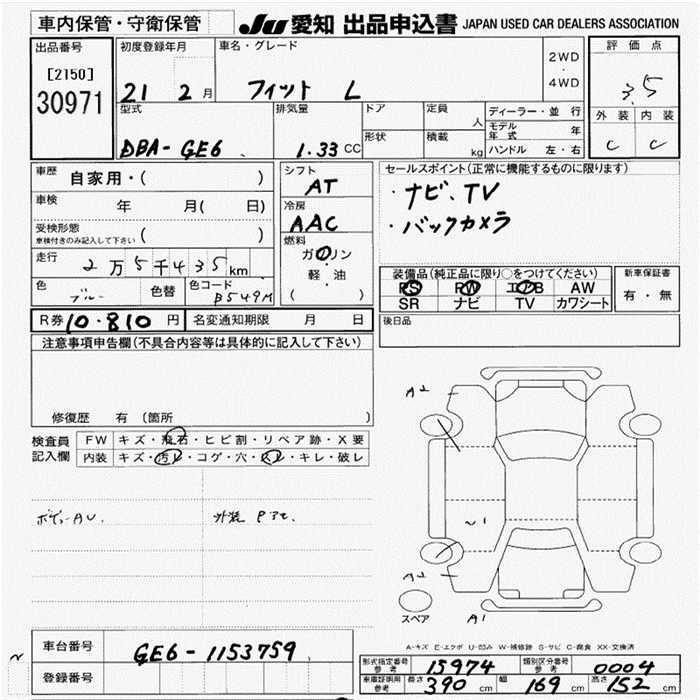 車内保管・守衛保管 JU 愛知 出品申込書 JAPAN USED CAR DEALERS ASSOCIATION
出品番号 初度登録年月 車名・グレード 評価点
[2150] 2WD
30971 21 2月 フィット L ・ 3.5
4WD
型式 排気量 ドア 定員 ディーラー・並 行 外装 内装
人 モデル年式 年
DBA-GE6 1.33CC 形状 積載 C C
kg ハンドル 左・右
車歴 自家用・( ) シフト セールスポイント(正常に機能するものに限ります)
AT ・ナビ、TV
車検 年 月( 日) 冷房 ・バックカメラ
AAC
受検形態 ( )
車検付きのみ記入して下さい 燃料
走行 2万5千435km ガソリン
・
軽・油
( )
装備品(純正品に限り○をつけてください) 新車保証書
色 ブルー 色替 色コード B549M PS PW エアB AW 有・無
SR ナビ TV カワシート
R券 10.810円 名変通知期限 月 日 後日品
注意事項申告欄(不具合内容等は具体的に記入して下さい)
修復歴 有 (箇所 )
検査員 FW キズ・飛石・ヒビ割・リペア跡・X要
記入欄 内装 キズ・汚レ・コゲ・穴・スレ・キレ・破レ
A2
ボディーAU. 外装
~1
A2
スペア A1
A-キズ E-エクボ U-凹み W-補修跡 S-サビ C-腐食 XX-交換済
車台番号 GE6-1153759
登録番号
形式指定番号 参考 15974 類別区分番号 参考 0004
車庫証明用 参考 長さ 390cm 幅 169cm 高さ 152cm